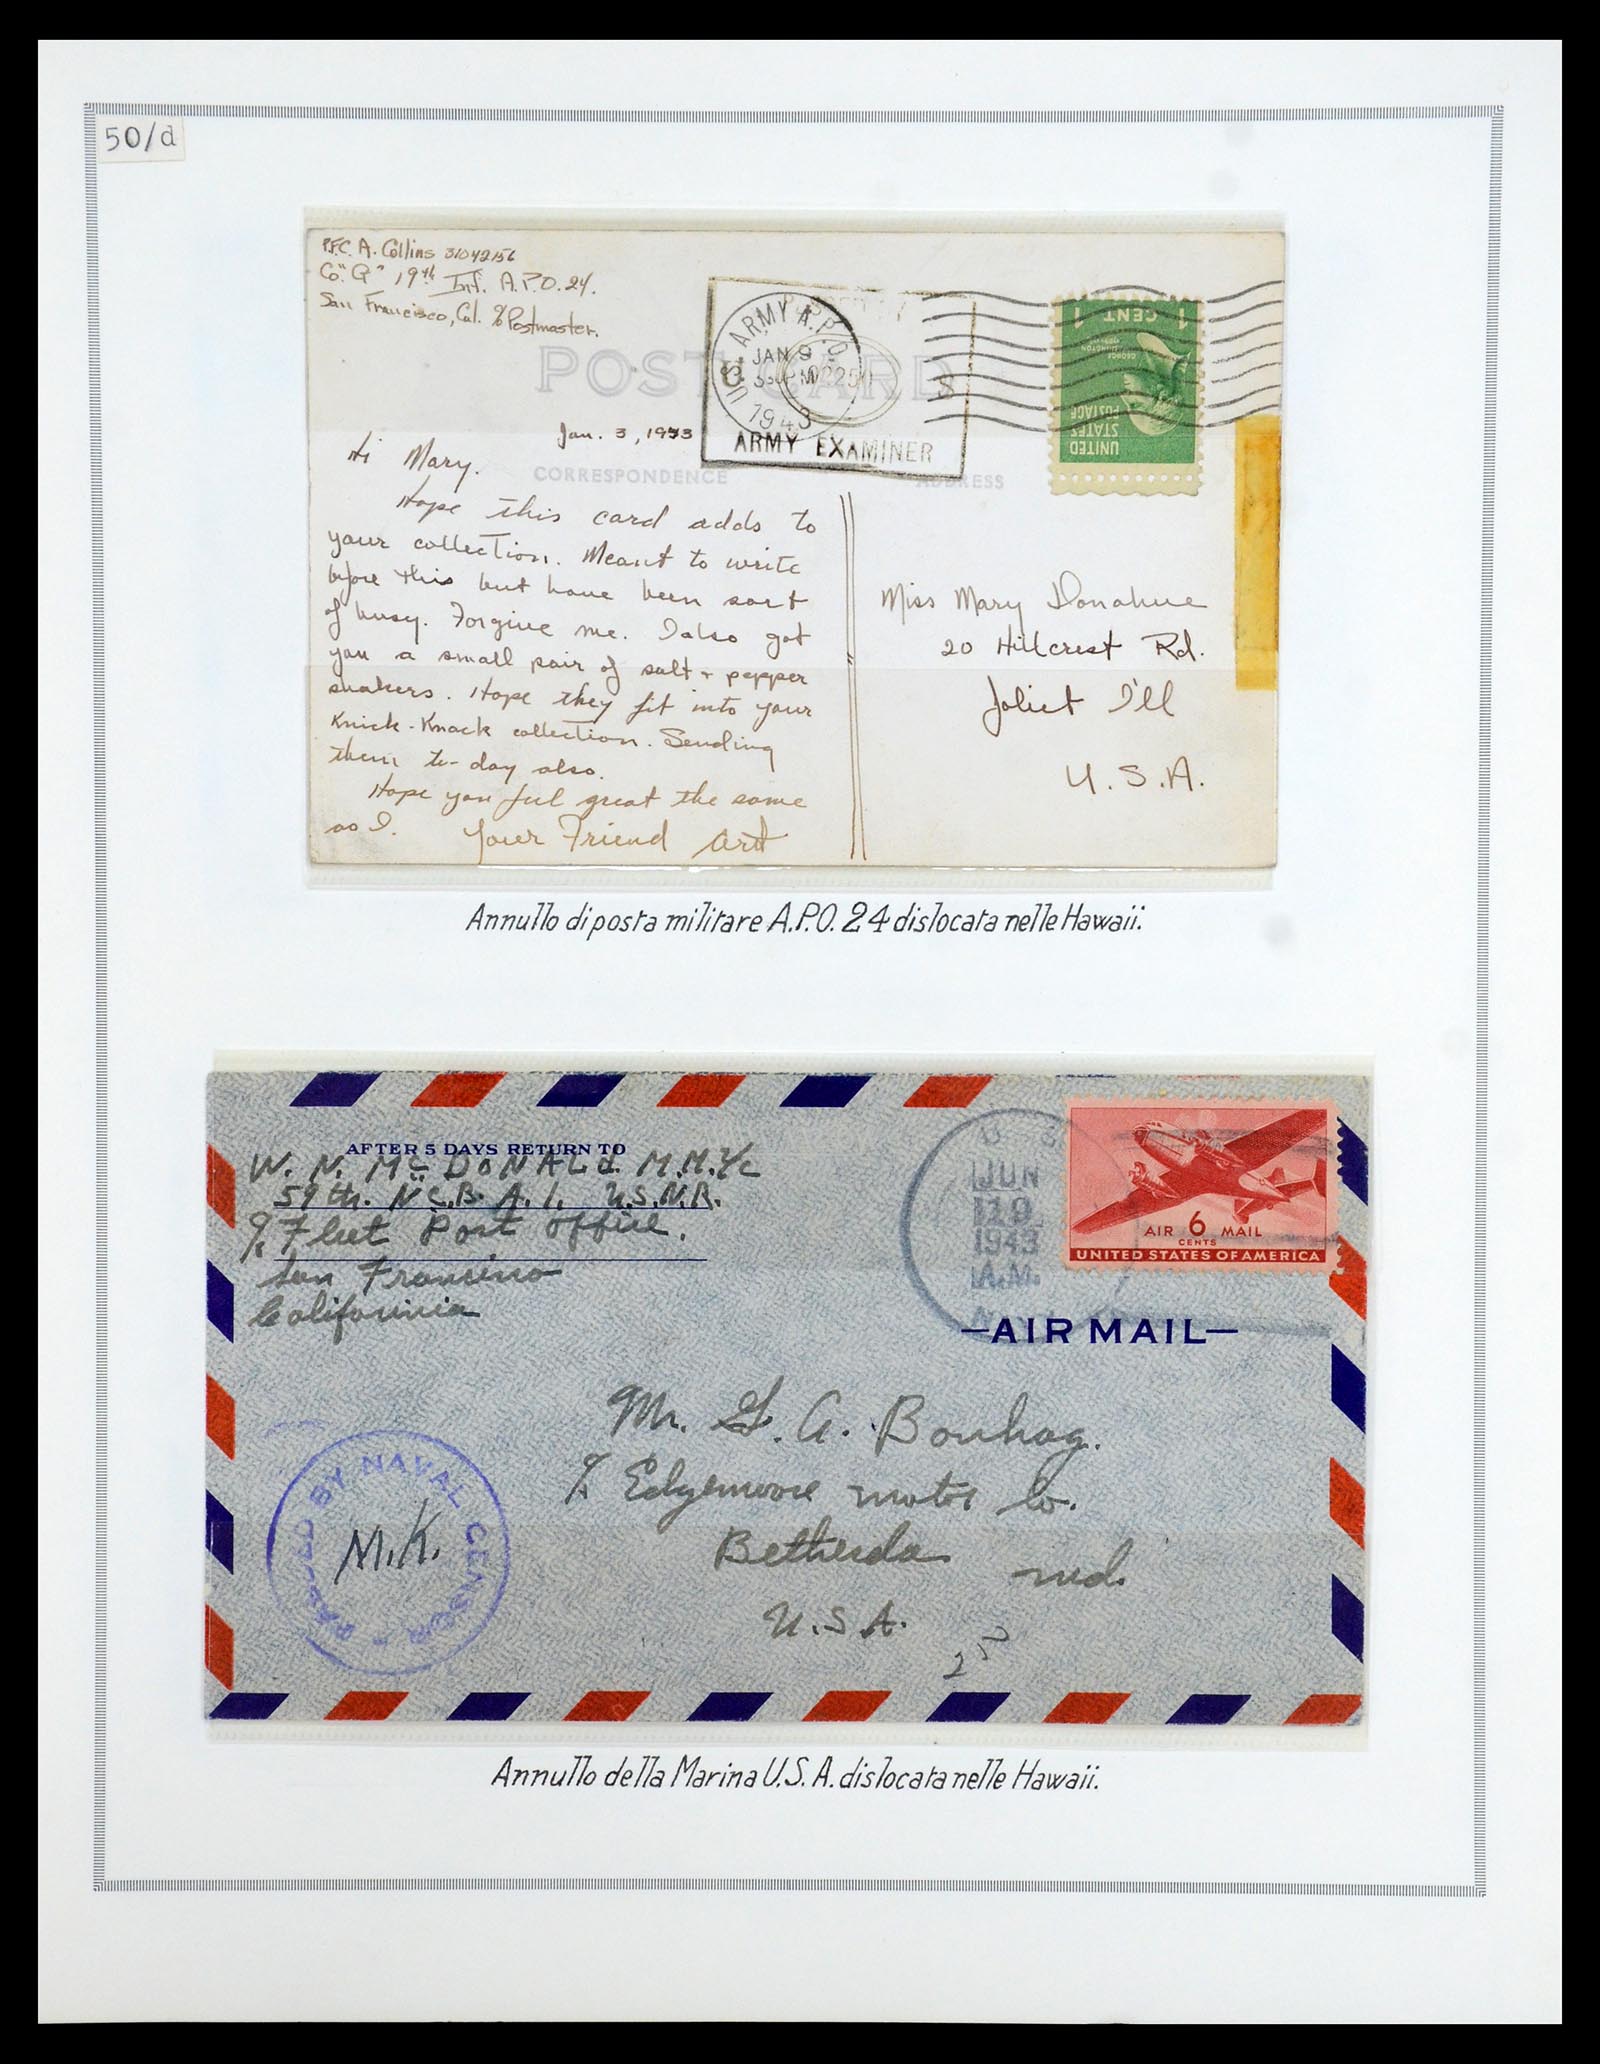 50/d
P.F.C. A. Collins 31042156
Co. "G" 19th Inf. A.P.O. 24.
San Francisco, Cal. c/o Postmaster.
U.S. ARMY A.P.O.
JAN 9
330 PM
1943
U S
ARMY EXAMINER
1 CENT 1
GEORGE WASHINGTON
UNITED
STATES
POSTAGE
POST CARD
CORRESPONDENCE
ADDRESS
Jan. 3, 1943
Hi Mary.
Hope this card adds to
your collection. Meant to write
before this but have been sort
of busy. Forgive me. I also got
you a small pair of salt + pepper
shakers. Hope they fit into your
Knick-Knack collection. Sending
them to-day also.
Hope you feel great the same
as I.
Your Friend Art
Miss Mary Donahue
20 Hillcrest Rd.
Joliet Ill
U.S.A.
Annullo di posta militare A.P.O. 24 dislocata nelle Hawaii.
AFTER 5 DAYS RETURN TO
W. N. McDONALd M.M.2/c
59th. N.C.B. A.1. U.S.N.R.
c/o Fleet Post Office.
San Francisco
California
U S
JUN
19
1943
A.M.
AIR 6 MAIL
CENTS
UNITED STATES OF AMERICA
—AIR MAIL—
Mr. G. A. Bouhag.
c/o Edgemoore motor Co.
Bethesda md.
U.S.A.
25
PASSED BY NAVAL CENSOR -
M.K.
Annullo della Marina U.S.A. dislocata nelle Hawaii.